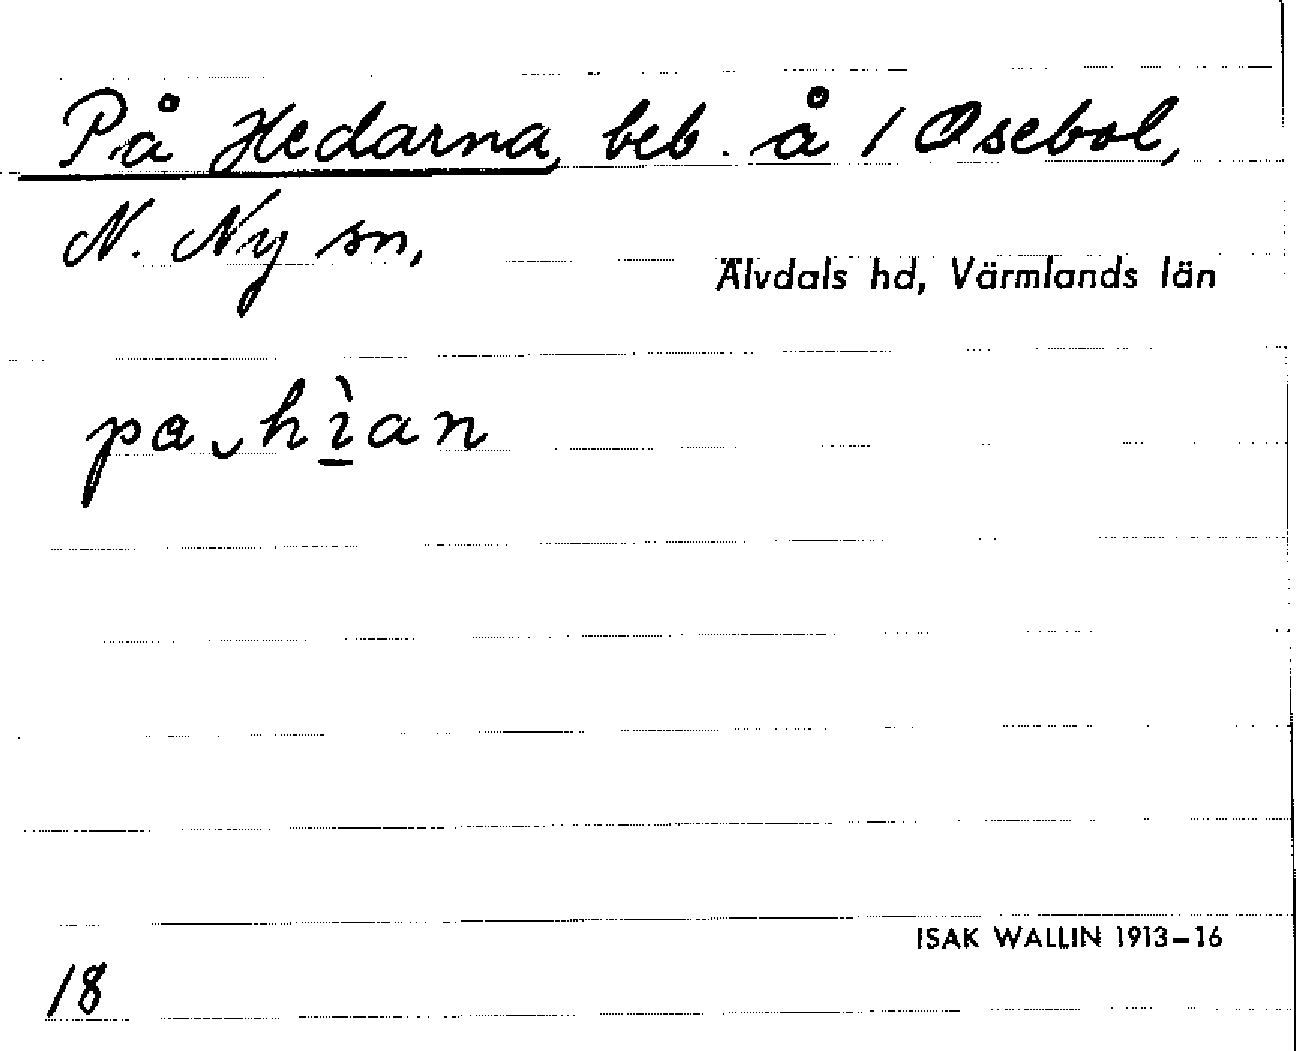 På Hedarna, beb. å 1 Osebol,
N. Ny sn,
Älvdals hd, Värmlands län
pa ̮hìan
ISAK WALLIN 1913–16
18